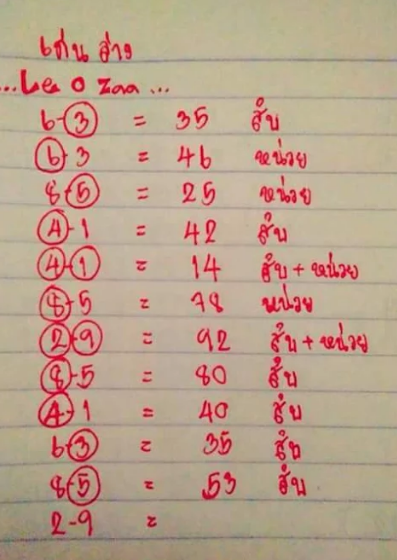 เด่น ล่าง
...Lee O Zaa...
6-3 = 35 สิบ
6-3 = 46 หน่วย
8-5 = 25 หน่วย
4-1 = 42 สิบ
4-1 = 14 สิบ+หน่วย
8-5 = 78 หน่วย
2-9 = 92 สิบ+หน่วย
8-5 = 80 สิบ
4-1 = 40 สิบ
6-3 = 35 สิบ
8-5 = 53 สิบ
2-9 =